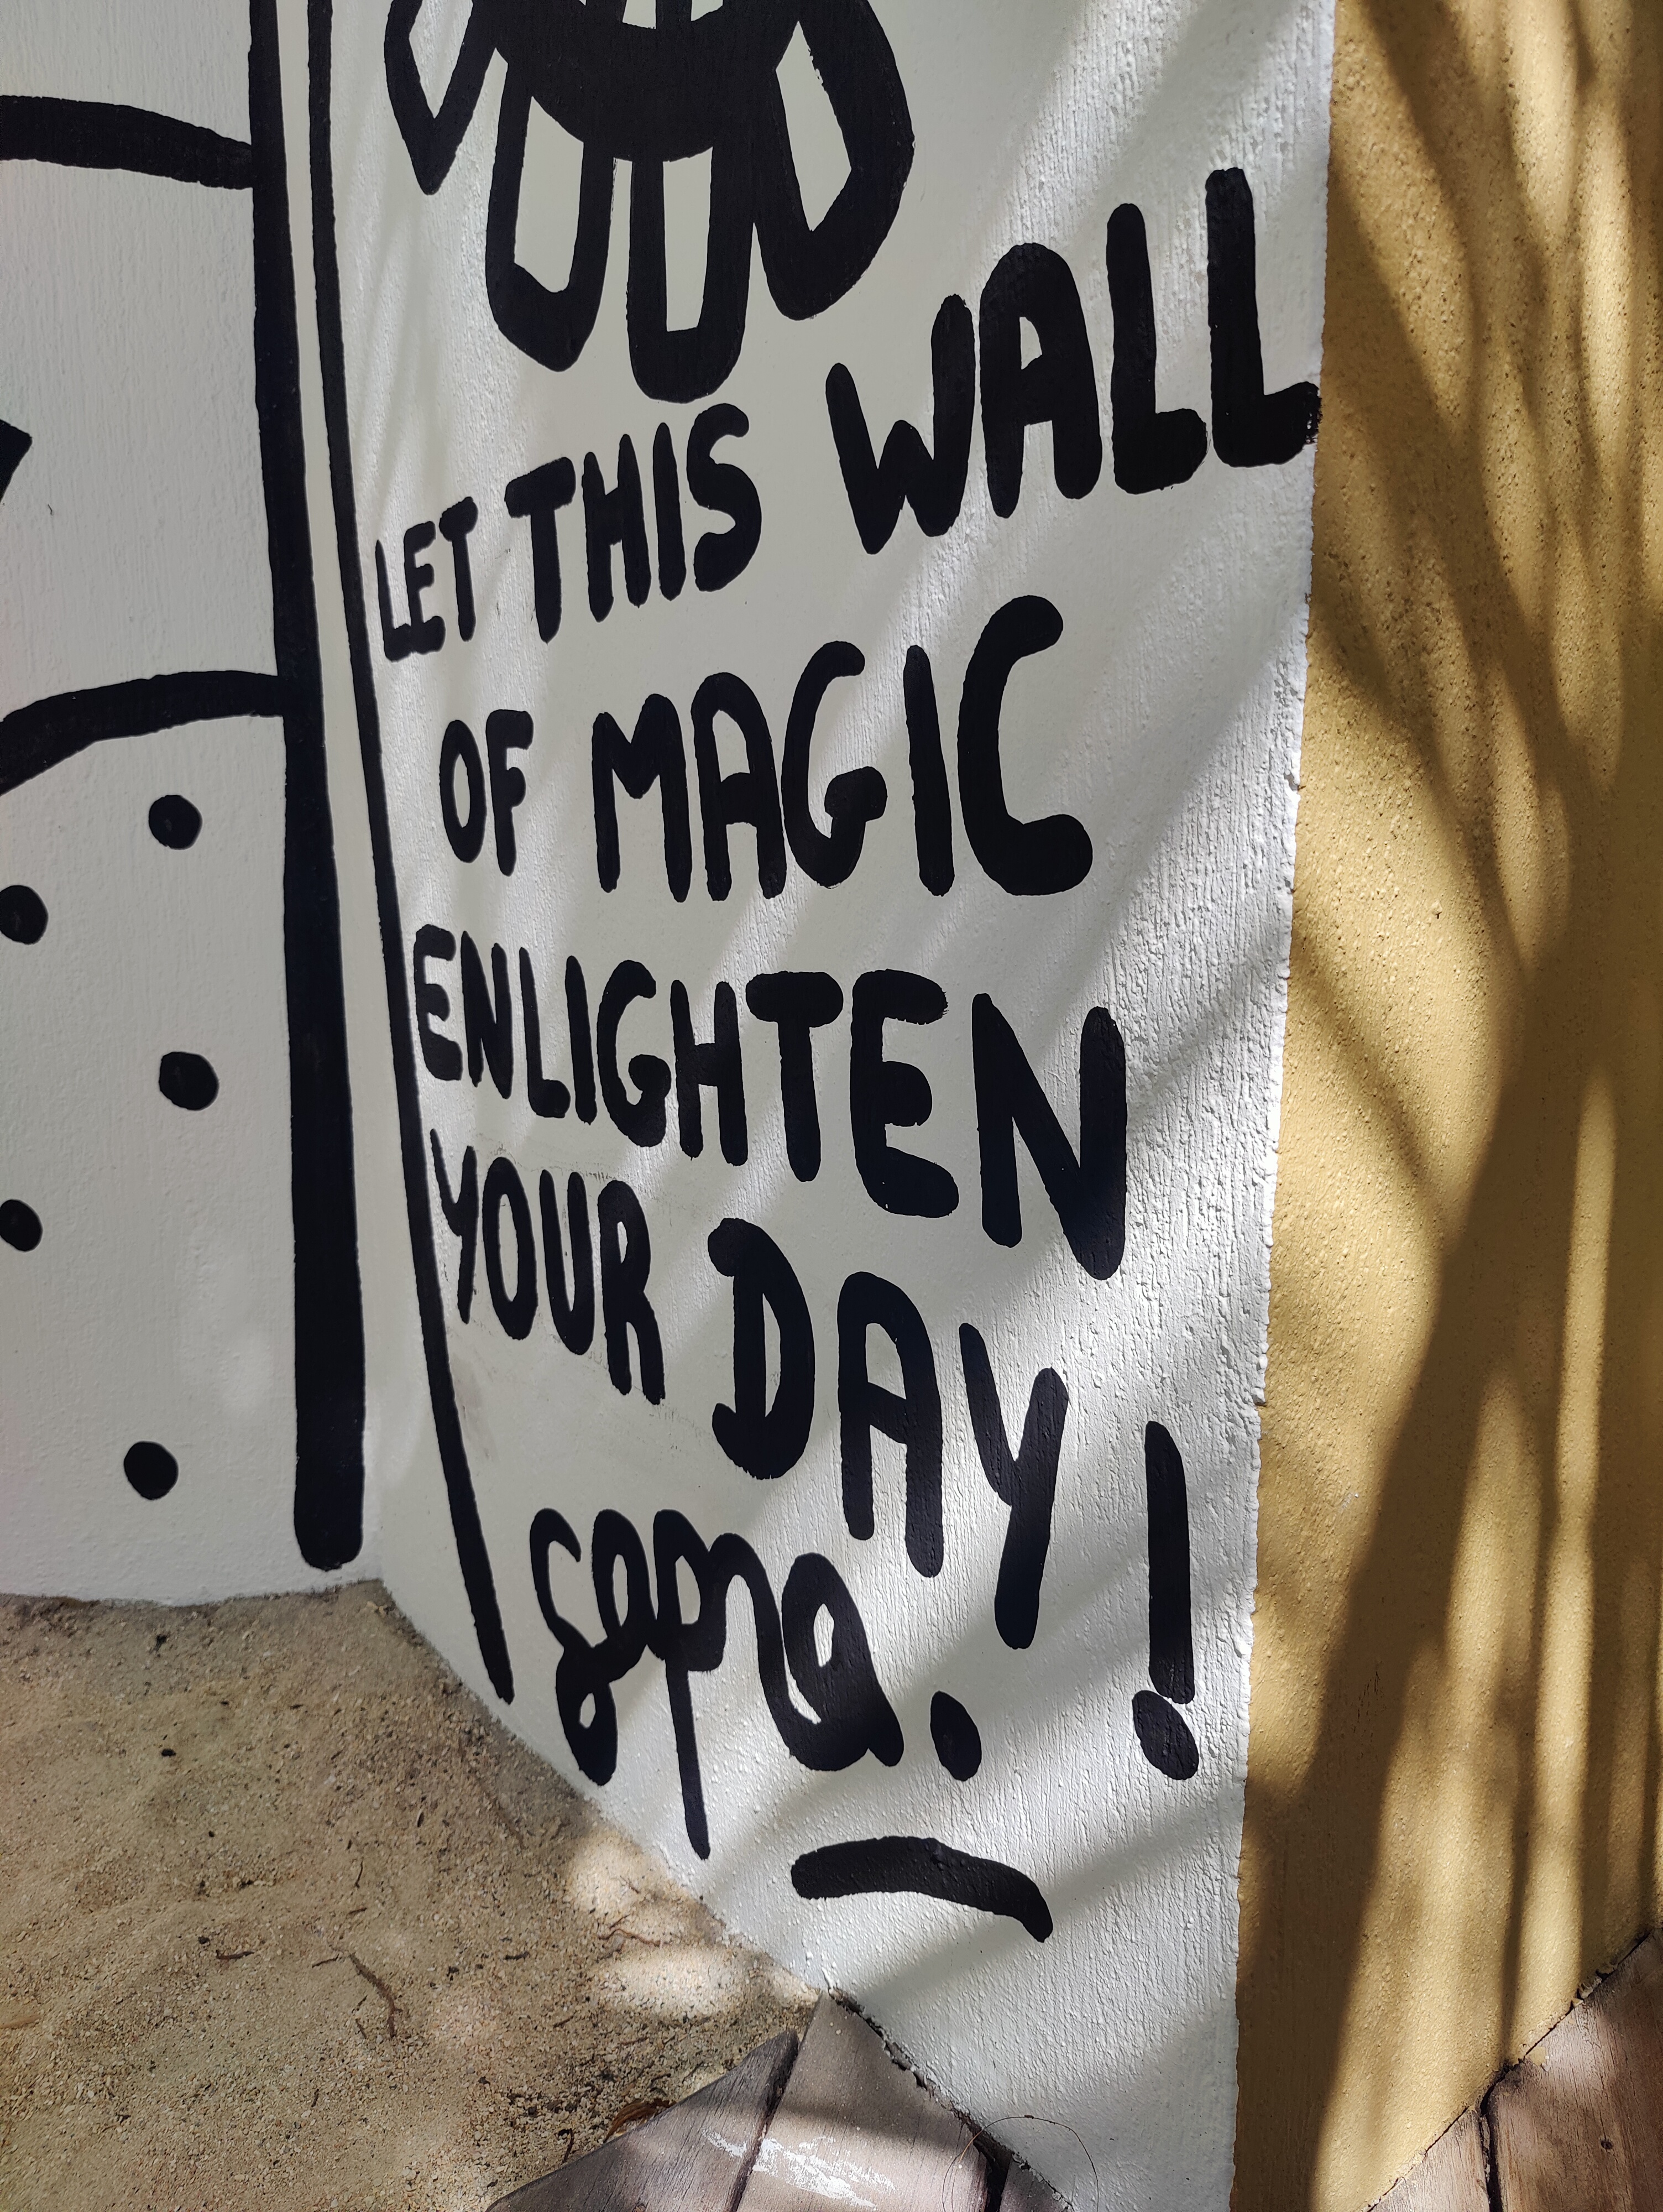 LET THIS WALL
OF MAGIC
ENLIGHTEN
YOUR DAY!